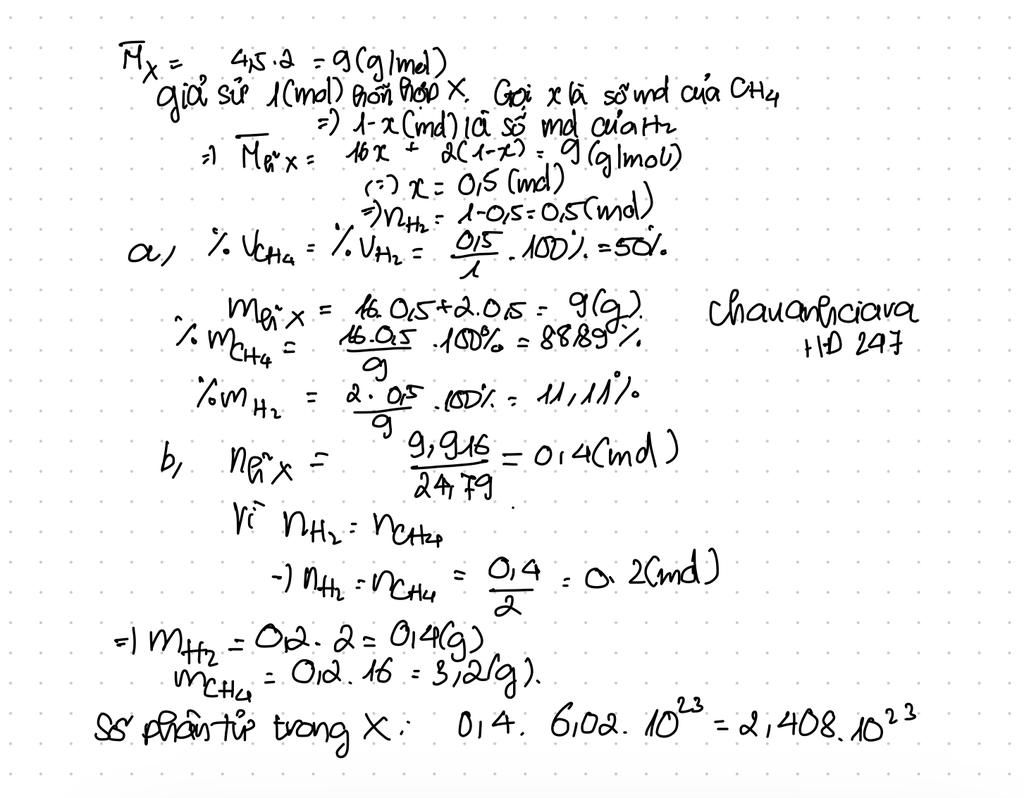 M̅X = 4,5.2 = 9(g/mol)
giả sử 1(mol) hỗn hợp X. Gọi x là số mol của CH4
=) 1-x(mol) là số mol của H2
=) M̅hh X = 16x + 2(1-x) = 9(g/mol)
(=) x = 0,5(mol)
=) nH2 = 1-0,5=0,5(mol)
a, % VCH4 = % VH2 = 0,5/1 . 100% = 50%.
mhh X = 16.0,5+2.0,5 = 9(g).
% mCH4 = 16.0,5/9 .100% = 88,89%
%mH2 = 2.0,5/9 .100% = 11,11%
chauanhciara
HD 247
b, nhh X = 9,916/24,79 = 0,4(mol)
Vì nH2 = nCH4
-) nH2 = nCH4 = 0,4/2 = 0.2(mol)
=) mH2 = 0,2.2 = 0,4(g)
mCH4 = 0,2.16 = 3,2(g).
Số phân tử trong X: 0,4. 6,02.10^23 = 2,408.10^23